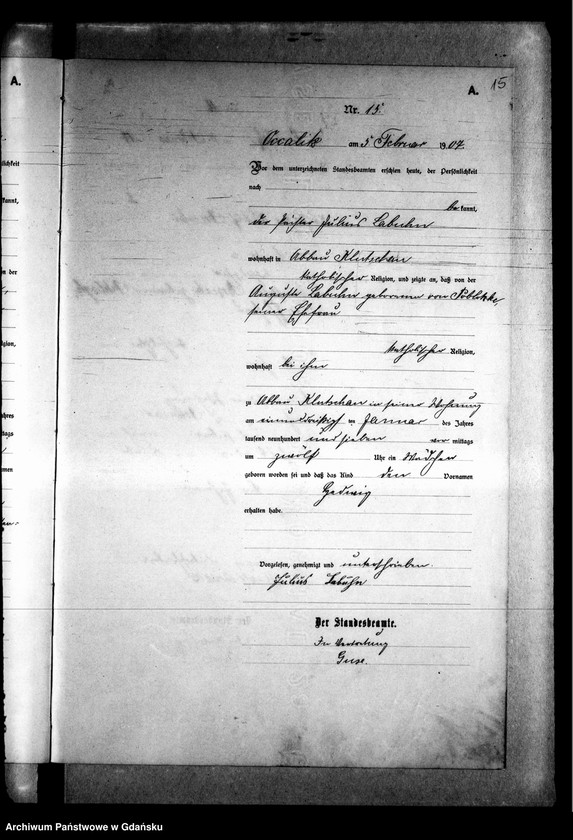 A.
A. 15
Nr. 15.
am 5 Februar 1907.
Vor dem unterzeichneten Standesbeamten erschien heute, der Persönlichkeit
nach
be kannt,
der Julius Labuhn
wohnhaft in Abbau Klutschau
katholischer Religion, und zeigte an, daß von der
Auguste Labuhn geborenen von
seiner Ehefrau
katholischer Religion,
wohnhaft bei ihm
zu Abbau Klutschau in seiner Wohnung
am einunddreißigsten Januar des Jahres
tausend neunhundert und sieben vor mittags
um zwölf Uhr ein Mädchen
geboren worden sei und daß das Kind den Vornamen
Hedwig
erhalten habe.
Vorgelesen, genehmigt und unterschrieben.
Julius Labuhn
Der Standesbeamte.
In Vertretung
Guse.
Archiwum Państwowe w Gdańsku